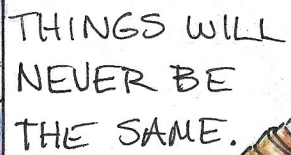 THINGS WILL
NEVER BE
THE SAME.